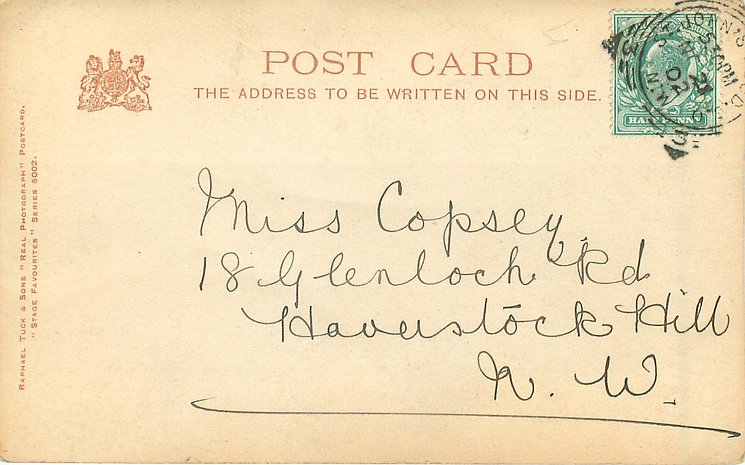 POST CARD
THE ADDRESS TO BE WRITTEN ON THIS SIDE.
HALFPENNY
Miss Copsey,
18 Glenloch Rd
Haverstock Hill
N. W.
RAPHAEL TUCK & SONS "REAL PHOTOGRAPH" POSTCARD.
"STAGE FAVOURITES" SERIES 5002.